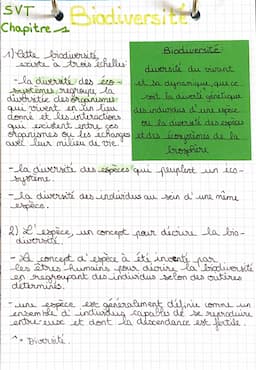 SVT
Chapitre 1
Biodiversité
1) Cette biodiversité
existe à trois échelles
- la diversité des éco-
systèmes regroupe la
diversitée des organismes
qui vivent en un lieu
donné et les interactions
qui existent entre ces
organismes ou les échanges
avec leur milieu de vie.
Biodiversité
diversité du vivant
et sa dynamique, que ce
soit la diversité génétique
des individus d'une espèce
ou la diversité des espèces
et des écosystèmes de la
biosphère
- la diversité des espèces qui peuplent un éco-
système.
- la diversité des individus au sein d'une même
espèce.
2) L'espèce, un concept pour décrire la bio-
diversité.
- Le concept d'espèce à été inventé par
les êtres-humains pour décrire la biodiversité
en regroupant des individus selon des critères
déterminés.
- une espèce est généralement définie comme un
ensemble d'individus capables de se reproduire
entre-eux et dont la descendance est fertile.